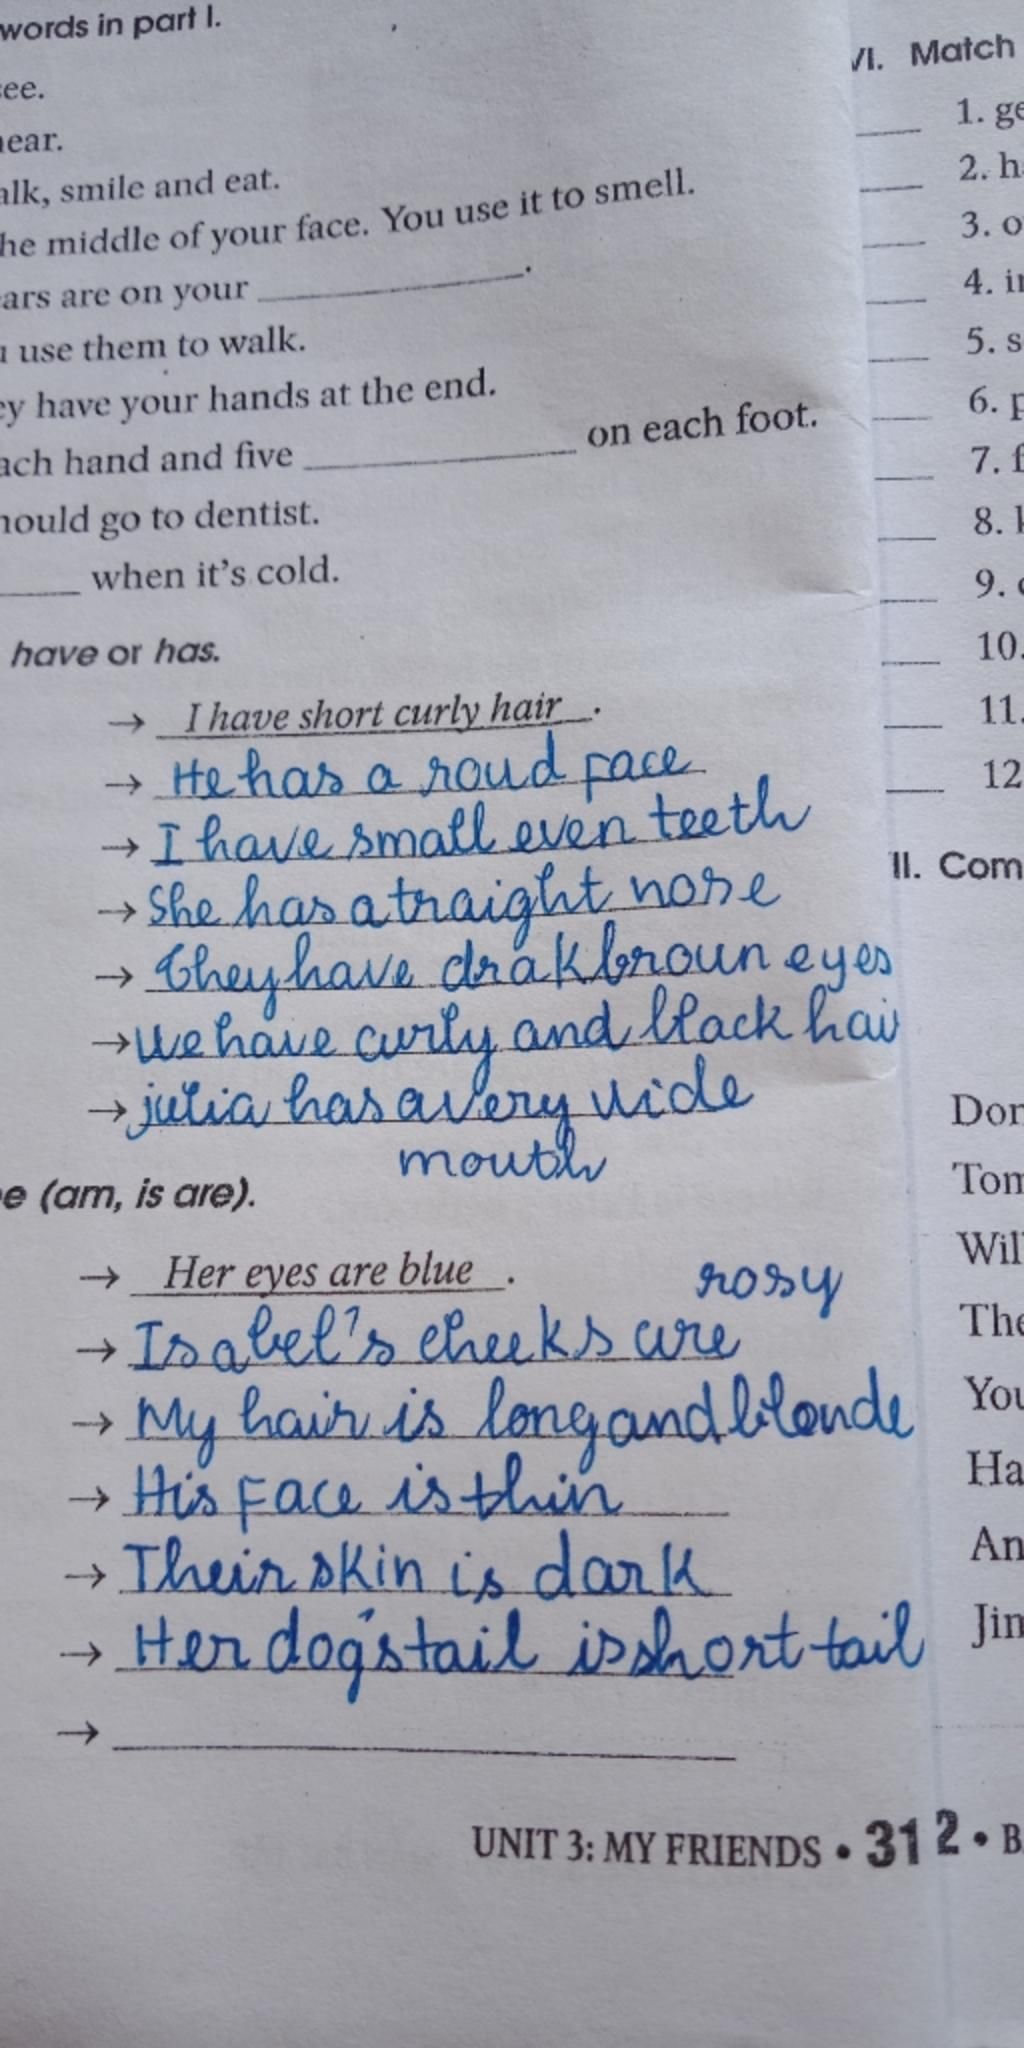 words in part I.
see.
hear.
alk, smile and eat.
he middle of your face. You use it to smell.
ars are on your ____________.
u use them to walk.
ey have your hands at the end.
ach hand and five ____________ on each foot.
hould go to dentist.
____ when it's cold.
have or has.
→ I have short curly hair .
→ He has a roud face
→ I have small even teeth
→ She has a traight nose
→ They have drak broun eyes
→ We have curly and black hai
→ julia has a very wide
mouth
e (am, is are).
→ Her eyes are blue .
rosy
→ Isabel's cheeks are
→ My hair is long and blonde
→ His face is thin
→ Their skin is dark
→ Her dog's tail is short tail
→ ____________
UNIT 3: MY FRIENDS • 31
VI. Match
___ 1. ge
___ 2. h
___ 3. o
___ 4. in
___ 5. s
___ 6. p
___ 7. f
___ 8.
___ 9.
___ 10.
___ 11.
___ 12
II. Com
Don
Tom
Wil
The
You
Ha
An
Jim
2 • B